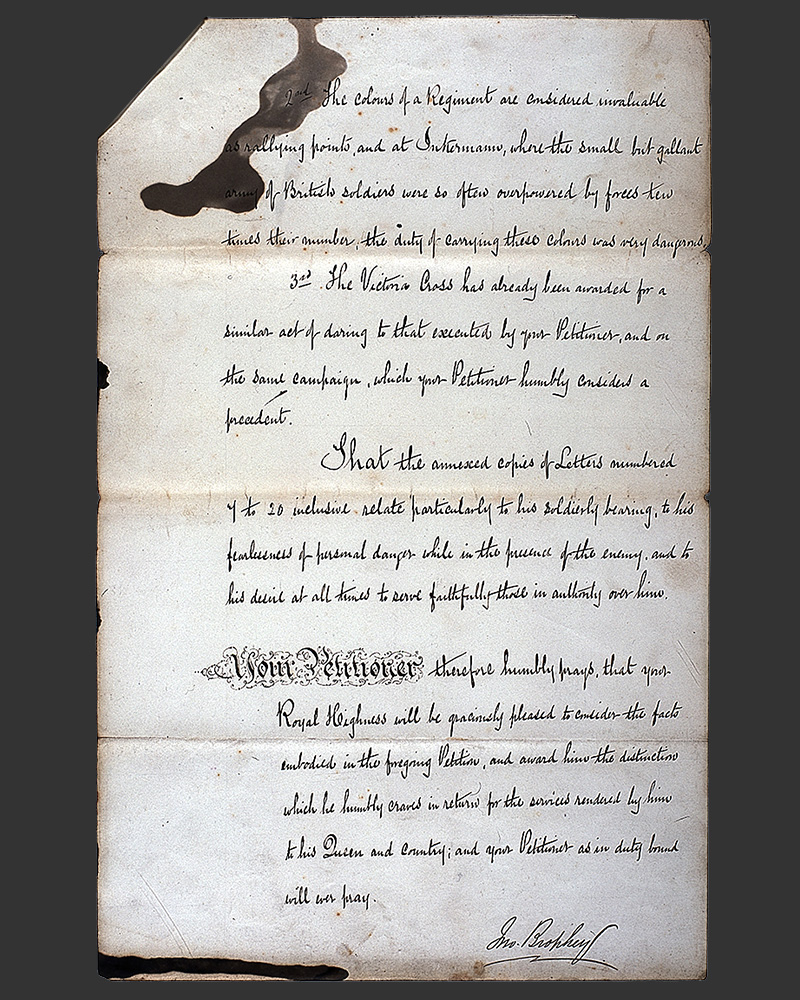 2nd The colours of a Regiment are considered invaluable
as rallying points, and at Inkermann, where the small but gallant
army of British soldiers were so often overpowered by forces ten
times their number, the duty of carrying these colours was very dangerous.
3rd. The Victoria Cross has already been awarded for a
similar act of daring to that executed by your Petitioner, and on
the same campaign, which your Petitioner humbly considers a
precedent.
That the annexed copies of Letters numbered
7 to 20 inclusive relate particularly to his soldierly bearing, to his
fearlessness of personal danger while in the presence of the enemy, and to
his desire at all times to serve faithfully those in authority over him.
Your Petitioner therefore humbly prays, that your
Royal Highness will be graciously pleased to consider the facts
embodied in the foregoing Petition, and award him the distinction
which he humbly craves in return for the services rendered by him
to his Queen and country; and your Petitioner as in duty bound
will ever pray.
Jno. Brophey